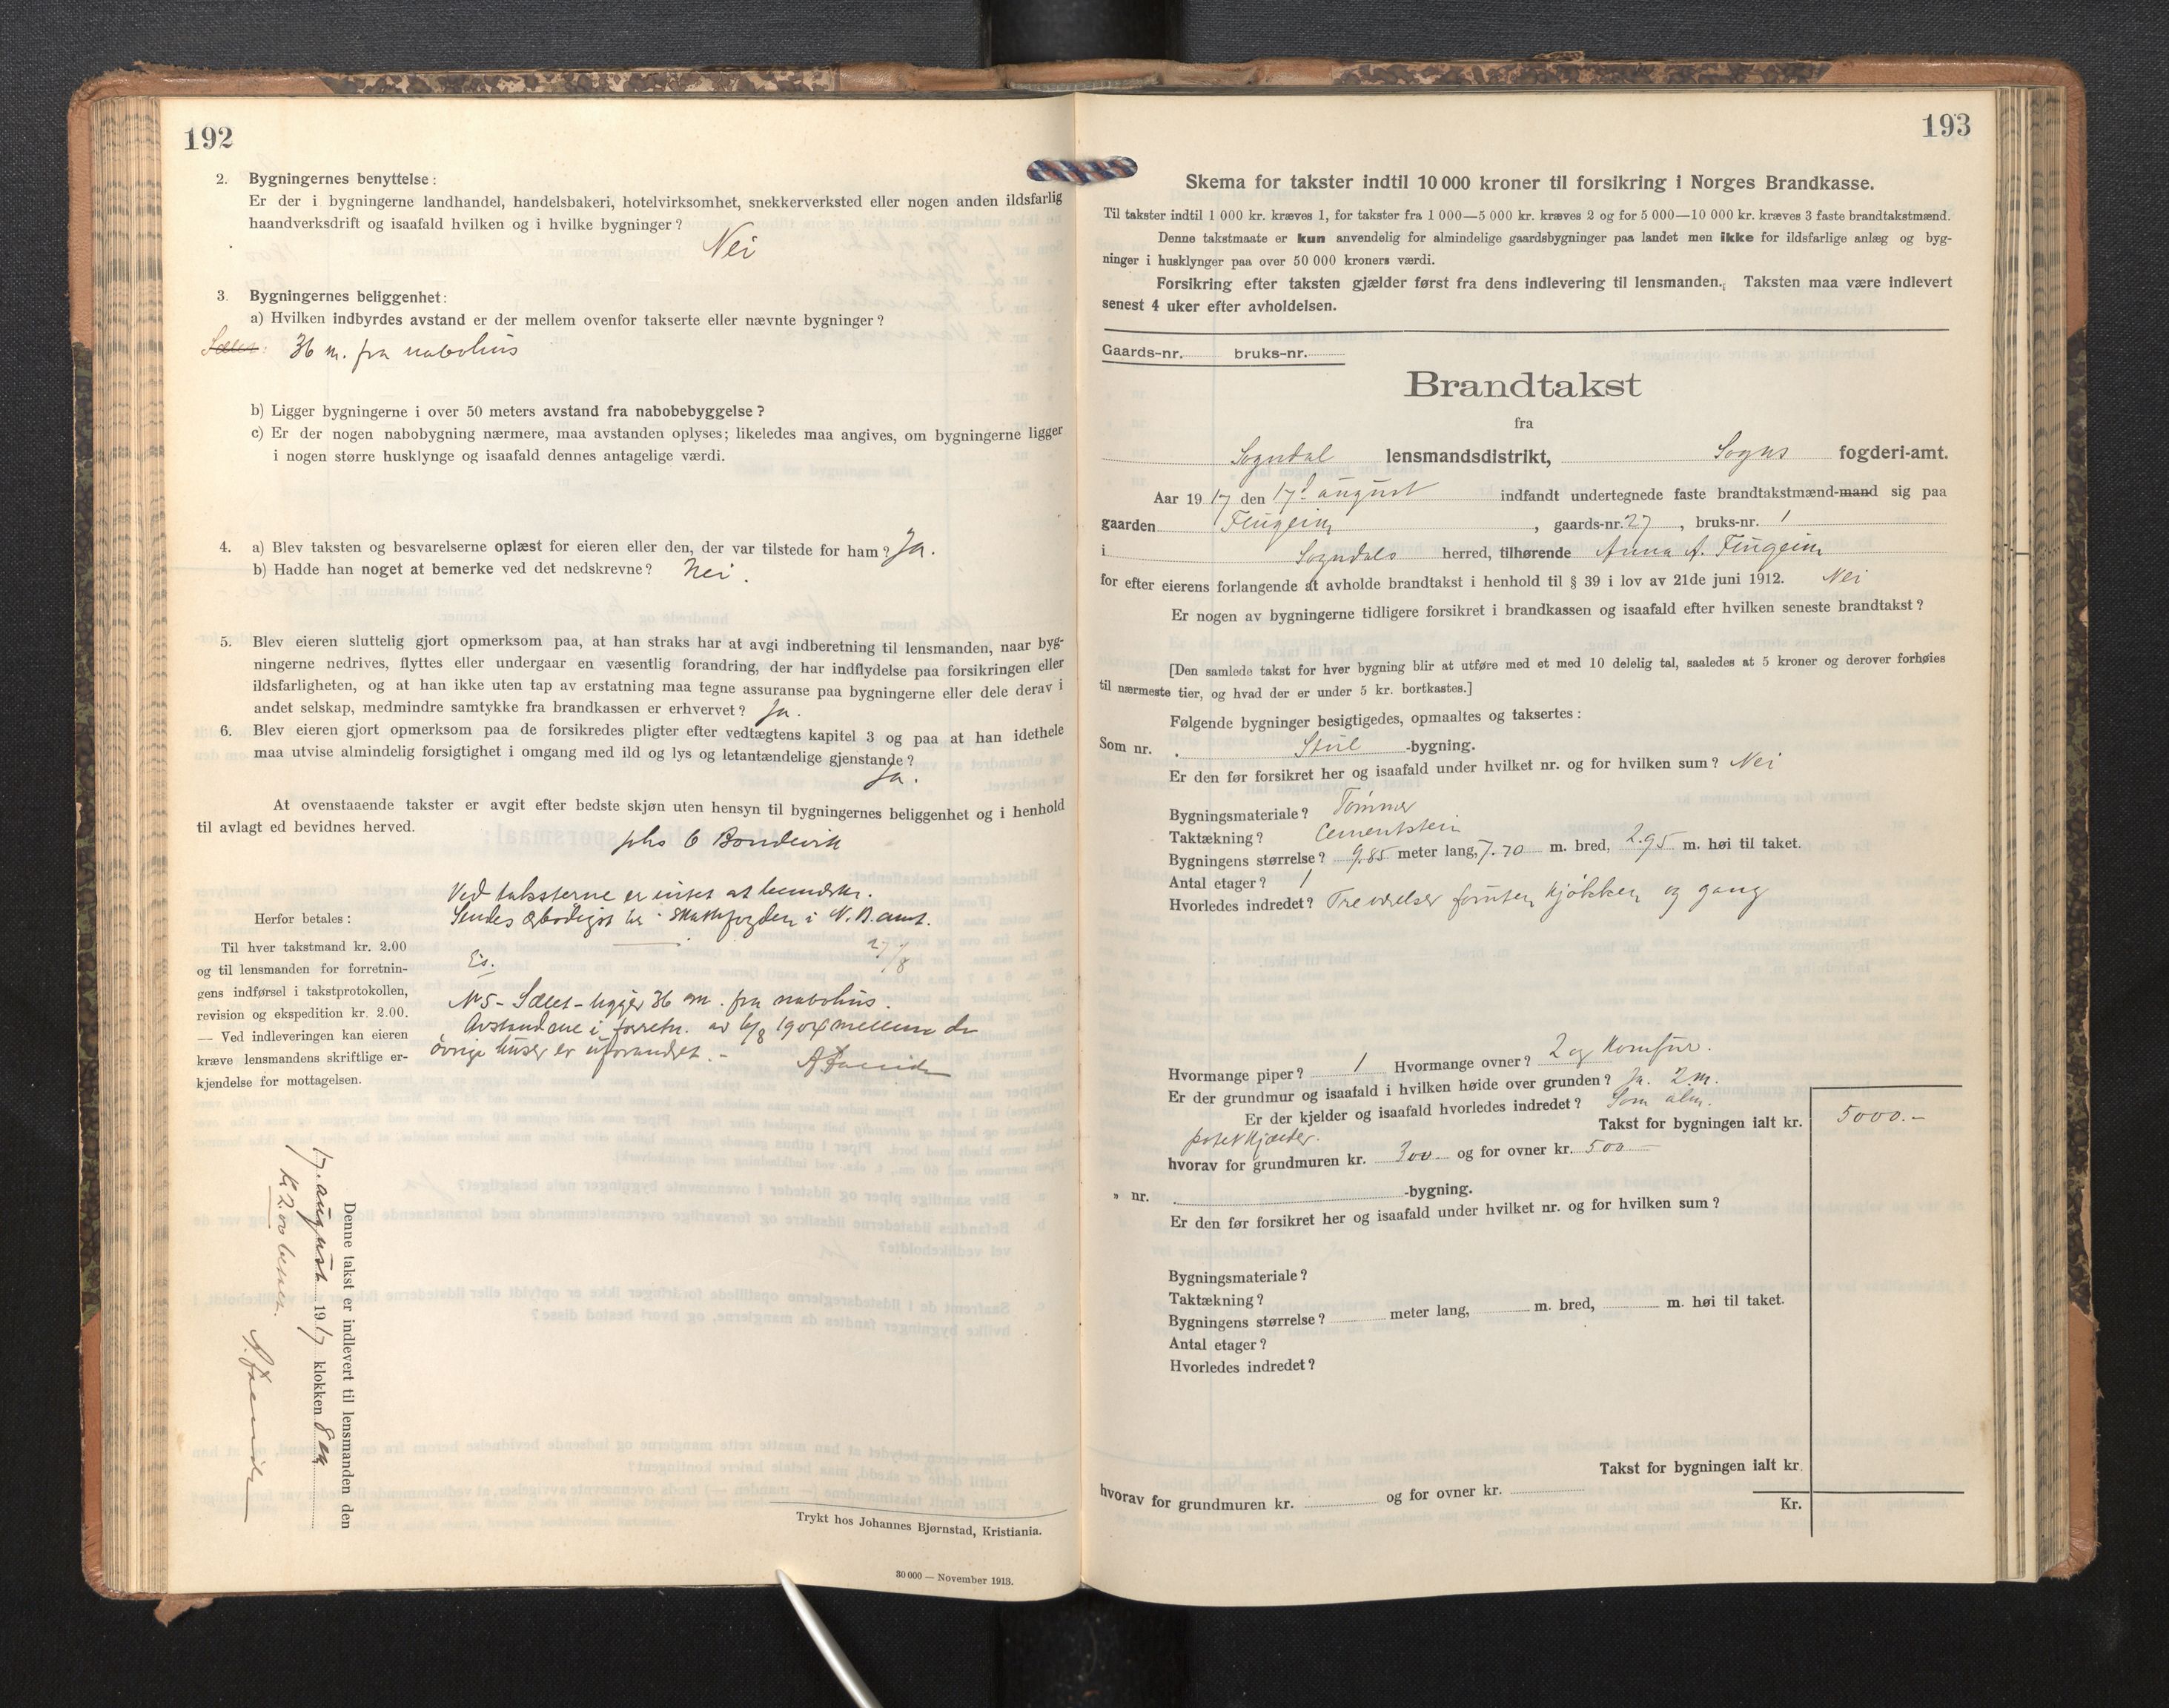 192
2. Bygningernes benyttelse:
Er der i bygningerne landhandel, handelsbakeri, hotelvirksomhet, snekkerverksted eller nogen anden ildsfarlig
haandverksdrift og isaafald hvilken og i hvilke bygninger?
Nei
3. Bygningernes beliggenhet:
a) Hvilken indbyrdes avstand er der mellem ovenfor takserte eller nævnte bygninger?
36 m. fra nabohus
b) Ligger bygningerne i over 50 meters avstand fra nabobebyggelse?
c) Er der nogen nabobygning nærmere, maa avstanden oplyses; likeledes maa angives, om bygningerne ligger
i nogen større husklynge og isaafald dennes antagelige værdi.
4. a) Blev taksten og besvarelserne oplæst for eieren eller den, der var tilstede for ham? Ja.
b) Hadde han noget at bemerke ved det nedskrevne? Nei.
5. Blev eieren sluttelig gjort opmerksom paa, at han straks har at avgi indberetning til lensmanden, naar byg-
ningerne nedrives, flyttes eller undergaar en væsentlig forandring, der har indflydelse paa forsikringen eller
ildsfarligheten, og at han ikke uten tap av erstatning maa tegne assuranse paa bygningerne eller dele derav i
andet selskap, medmindre samtykke fra brandkassen er erhvervet? Ja.
6. Blev eieren gjort opmerksom paa de forsikredes pligter efter vedtægtens kapitel 3 og paa at han idethele
maa utvise almindelig forsigtighet i omgang med ild og lys og letantændelige gjenstande?
Ja.
At ovenstaaende takster er avgit efter bedste skjøn uten hensyn til bygningernes beliggenhet og i henhold
til avlagt ed bevidnes herved.
Johs C Bondevik
Ved taksterne er intet at bemærke.
Sendes ærbødigst hr. Skattefogden i N. B. amt.
27/8
Es.
N 5 - Sælet - ligger 36 m. fra nabohus.
Avstandene i forretn. av 6/8 1904 mellem de
øvrige huser er uforandret. -
Herfor betales:
Til hver takstmand kr. 2.00
og til lensmanden for forretnin-
gens indførsel i takstprotokollen,
revision og ekspedition kr. 2.00.
— Ved indleveringen kan eieren
kræve lensmandens skriftlige er-
kjendelse for mottagelsen.
Denne takst er indlevert til lensmanden den
17. august 1917 klokken 8 em
Kr 2.00
Trykt hos Johannes Bjørnstad, Kristiania.
30 000 — November 1913.
193
Skema for takster indtil 10 000 kroner til forsikring i Norges Brandkasse.
Til takster indtil 1 000 kr. kræves 1, for takster fra 1 000—5 000 kr. kræves 2 og for 5 000—10 000 kr. kræves 3 faste brandtakstmænd.
Denne takstmaate er kun anvendelig for almindelige gaardsbygninger paa landet men ikke for ildsfarlige anlæg og byg-
ninger i husklynger paa over 50 000 kroners værdi.
Forsikring efter taksten gjælder først fra dens indlevering til lensmanden. Taksten maa være indlevert
senest 4 uker efter avholdelsen.
Gaards-nr. bruks-nr.
Brandtakst
fra
Sogndal lensmandsdistrikt, Sogns fogderi-amt.
Aar 1917 den 17d august indfandt undertegnede faste brandtakstmænd-mand sig paa
gaarden Flugeim, gaards-nr. 27, bruks-nr. 1
i Sogndals herred, tilhørende Anna A. Flugeim
for efter eierens forlangende at avholde brandtakst i henhold til § 39 i lov av 21de juni 1912. Nei
Er nogen av bygningerne tidligere forsikret i brandkassen og isaafald efter hvilken seneste brandtakst?
[Den samlede takst for hver bygning blir at utføre med et med 10 delelig tal, saaledes at 5 kroner og derover forhøies
til nærmeste tier, og hvad der er under 5 kr. bortkastes.]
Følgende bygninger besigtigedes, opmaaltes og taksertes:
Som nr. . Stue -bygning.
Er den før forsikret her og isaafald under hvilket nr. og for hvilken sum? Nei
Bygningsmateriale? Tømmer
Taktækning? Cementstein
Bygningens størrelse? 9.85 meter lang, 7.70 m. bred, 2.95 m. høi til taket.
Antal etager? 1
Hvorledes indredet? Tre værelser foruten kjøkken og gang
Hvormange piper? 1 Hvormange ovner? 2 og Komfur.
Er der grundmur og isaafald i hvilken høide over grunden? Ja. 2 m.
Er der kjelder og isaafald hvorledes indredet? Som alm.
potetkjelder.
Takst for bygningen ialt kr. 5000.-
hvorav for grundmuren kr. 300 og for ovner kr. 500
" nr. -bygning.
Er den før forsikret her og isaafald under hvilket nr. og for hvilken sum?
Bygningsmateriale?
Taktækning?
Bygningens størrelse? meter lang, m. bred, m. høi til taket.
Antal etager?
Hvorledes indredet?
Takst for bygningen ialt kr.
hvorav for grundmuren kr. og for ovner kr.
Kr.